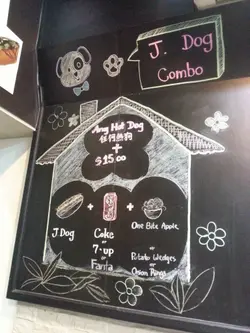 J. Dog
Combo
Any Hot Dog
任何热狗
+
$15.00
+
+
J Dog
Coke
or
7·up
or
Fanta
One Bite Apple
or
Potato Wedges
or
Onion Rings